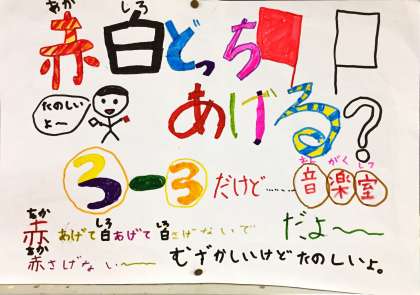 あか しろ
赤白どっち
たのしい
よー
あげる?
おん がく しつ
3-3だけど……音楽室
だよ〜〜
あか しろ しろ
赤あげて白あげて白さげないで
あか
赤さげない〜〜
むずかしいけどたのしいよ。